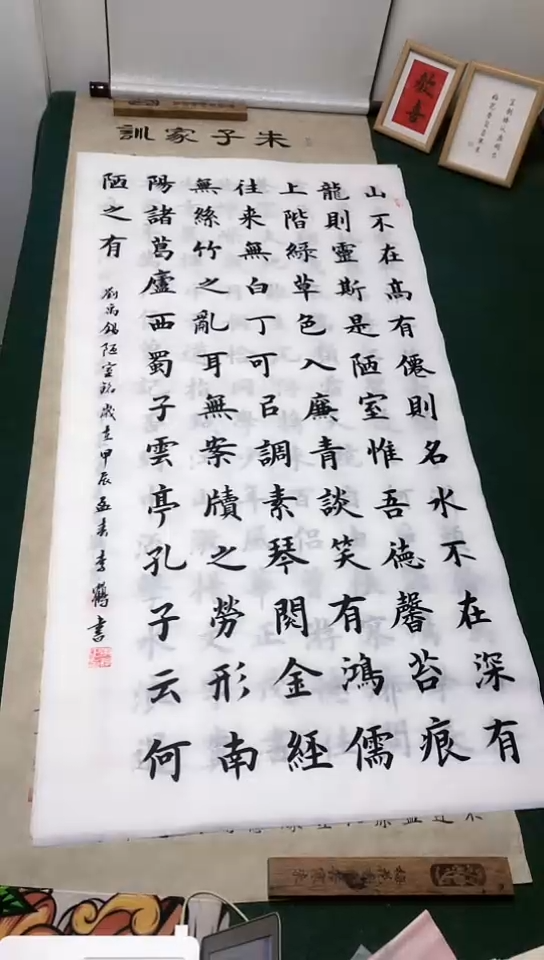 朱子家訓
山不在髙有僊則名水不在深有
龍則靈斯是陋室惟吾德馨苔痕
上階綠草色入廉青談笑有鴻儒
往來無白丁可㠯調素琴閱金經
無絲竹之亂耳無案牘之勞形南
陽諸葛廬西蜀子雲亭孔子云何
陋之有
劉禹錫陋室銘歲在甲辰孟春李鶴書
歡喜